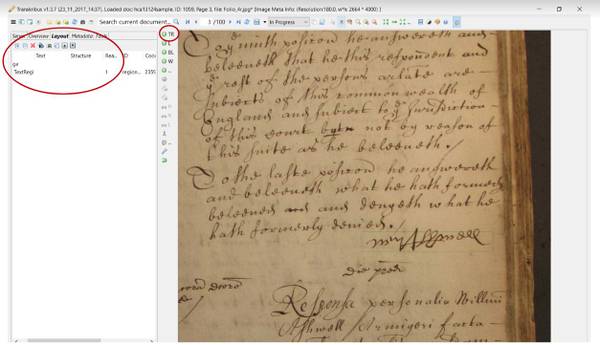 Transkribus v1.3.7 (23_11_2017_14:07), Loaded doc: hca1312%sample, ID: 1059, Page 3, file: Folio_4r.jpg* [Image Meta Info: (Resolution:180.0, w*h: 2664 * 4000) ]
Search current document...
3 /100
In Progress
Server Overview Layout Metadata Tools
Text Structure Rea... ID Coo
TextRegi 1 region... 2359
TR
L
BL
W
ninth posicon he answereth and
beleeueth that he this respondent and
ye rest of the persons arlate are
subiects of this common wealth of
England and subiect to ye Jurisdiction
of this court not by reason of
this suite as he beleeueth.
To the laste posicon he answereth
and beleeueth what he hath formerly
beleeued and denyeth what he
hath formerly denied.
die
Responsa personalia Willimi
Ashwell Armigeri facta